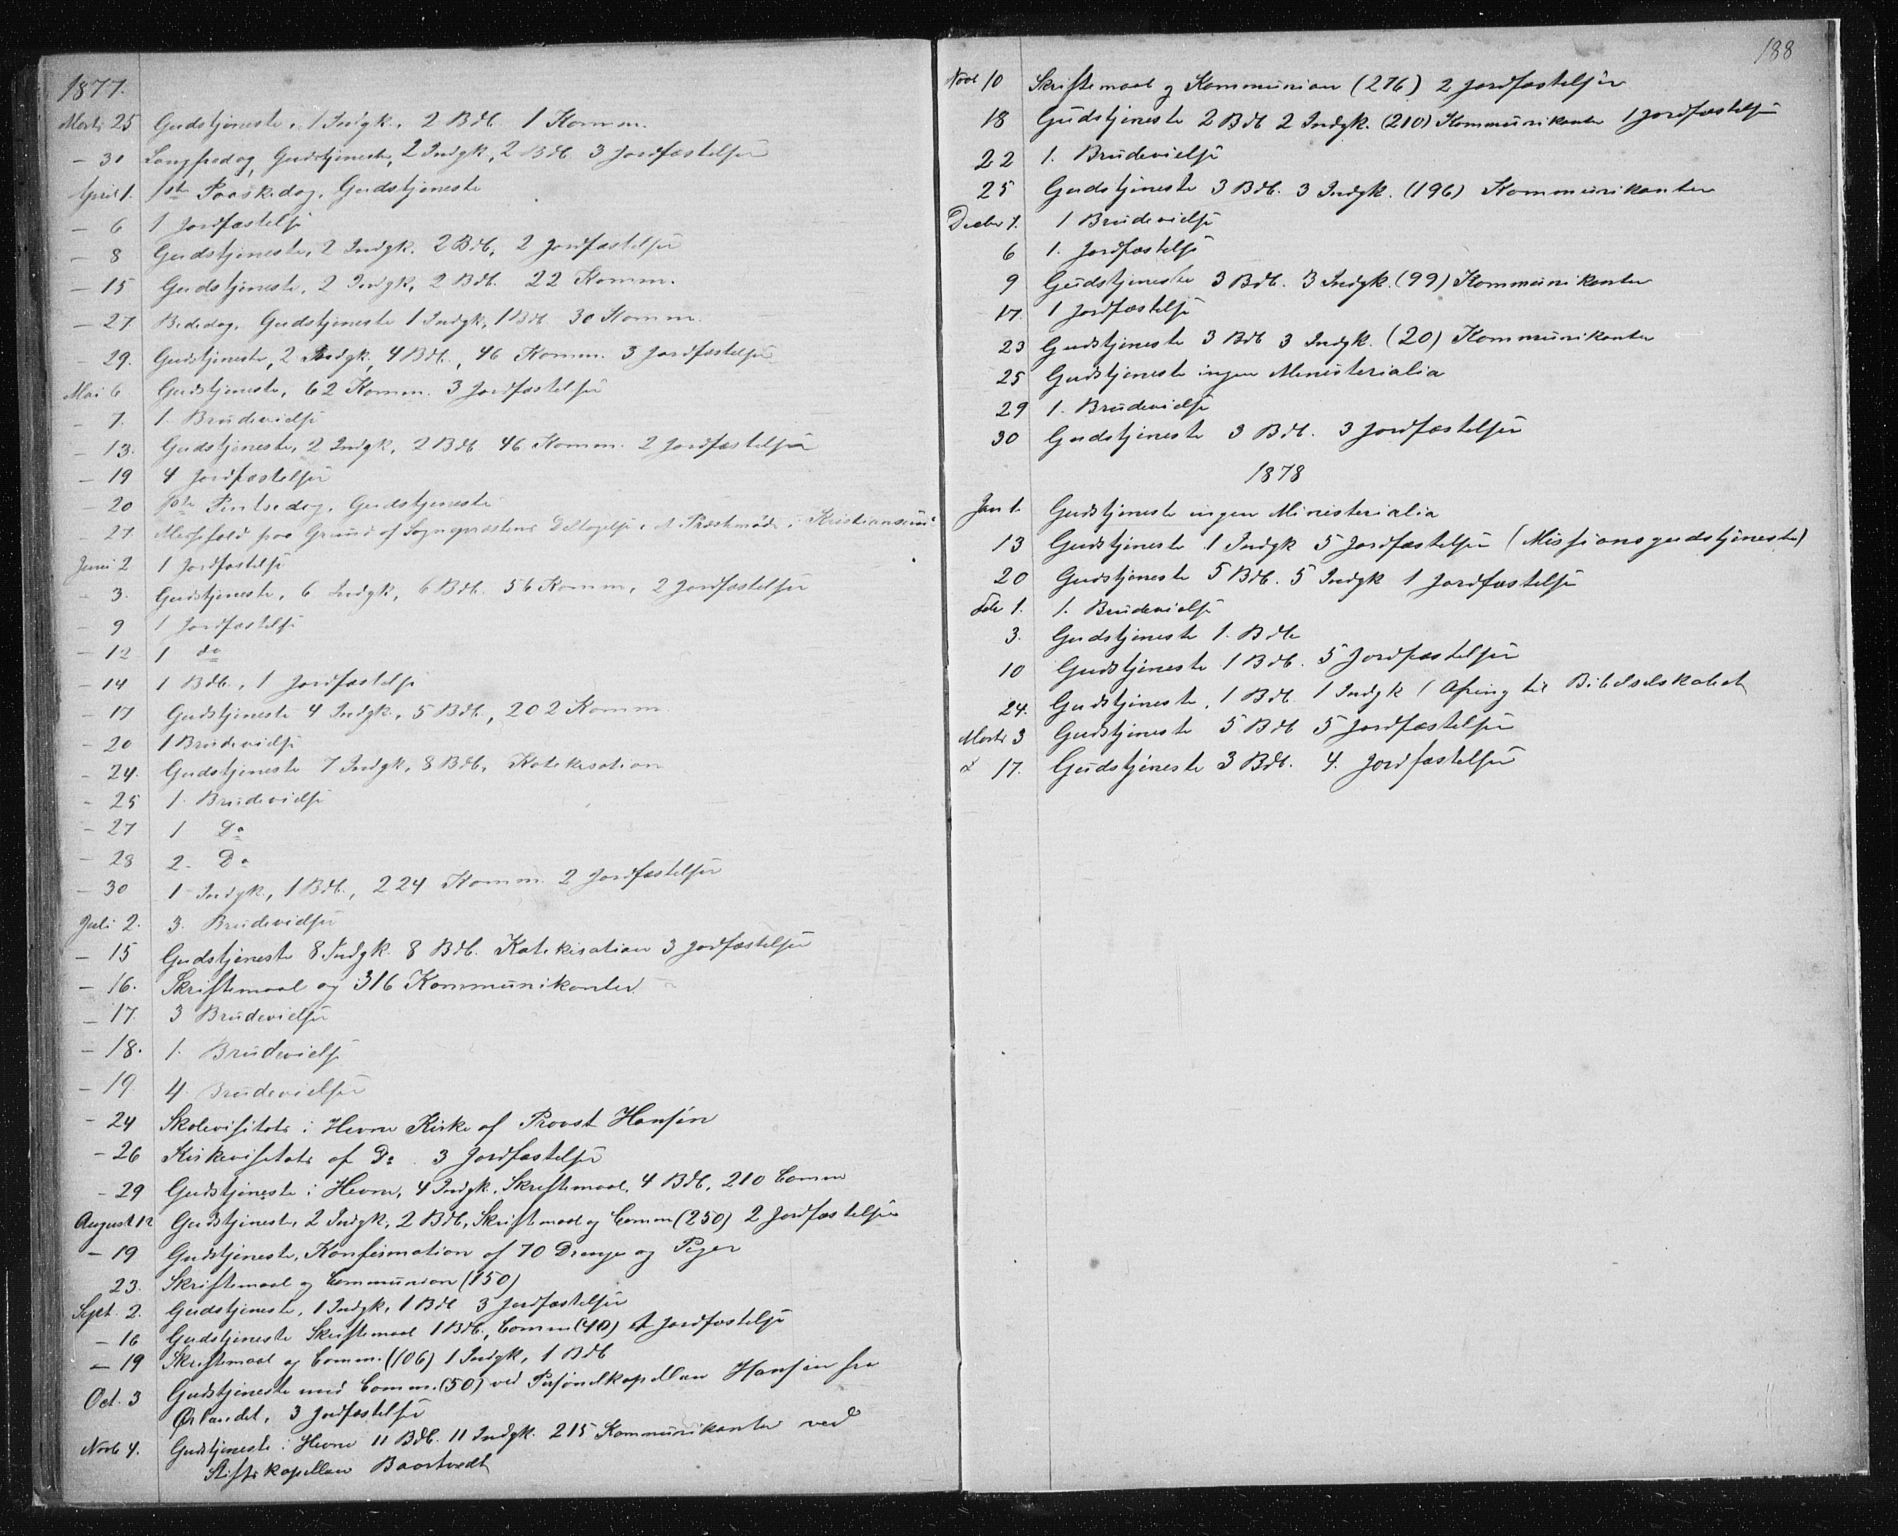 1877.
Marts 25 Gudstjeneste, 1 Indgk. 2 Bdb. 1 Komm.
— 30 Langfredag, Gudstjeneste, 2 Indgk, 2 Bdb. 3 Jordfæstelser
April 1. 1ste Paaskedag. Gudstjeneste
— 6 1 Jordfæstelse
— 8 Gudstjeneste, 2 Indgk. 2 Bdb. 2 Jordfæstelser
— 15 Gudstjeneste, 2 Indgk, 2 Bdb. 22 Komm.
— 27 Bededag, Gudstjeneste 1 Indgk, 1 Bdb. 30 Komm.
— 29. Gudstjeneste, 2 Indgk, 4 Bdb., 46 Komm. 3 Jordfæstelser
Mai 6 Gudstjeneste, 62 Komm. 3 Jordfæstelser
— 7. 1. Brudevielse
— 13. Gudstjeneste, 2 Indgk, 2 Bdb 46 Komm. 2 Jordfæstelser
— 19 4 Jordfæstelser
— 20 1ste Pintsedag, Gudstjeneste
— 27. Messefald paa Grund af Sognepræstens Deltagelse i et Præstemøde i Kristianssund
Juni 2 1 Jordfæstelse
— 3. Gudstjeneste, 6 Indgk, 6 Bdb. 56 Komm, 2 Jordfæstelser
— 9 1 Jordfæstelse
— 12 1 do
— 14 1 Bdb., 1 Jordfæstelse
— 17 Gudstjeneste 4 Indgk, 5 Bdb., 202 Komm
— 20 1 Brudevielse
— 24. Gudstjeneste 7 Indgk, 8 Bdb, Katekisation
— 25 1. Brudevielse
— 27 1 Do
— 28 2. Do
— 30 1 Indgk, 1 Bdb, 224 Komm. 2 Jordfæstelser
Juli 2. 3. Brudevielser
— 15 Gudstjeneste 8 Indgk. 8 Bdb. Katekisation 3 Jordfæstelser
— 16. Skriftemaal og 316 Kommunikanter
— 17. 3 Brudevielser
— 18. 1. Brudevielse
— 19. 4. Brudevielser
— 24 Skolevisitats i Hevne Kirke af Provst Hansen
— 26 Kirkevisitats af Do. 3 Jordfæstelser
— 29 Gudstjeneste i Hevne, 4 Indgk. Skriftemaal, 4 Bdb, 210 Comm
August 12 Gudstjeneste, 2 Indgk, 2 Bdb, Skriftemaal og Comm (250) 2 Jordfæstelser
— 19 Gudstjeneste, Konfirmation af 70 Drenge og Piger
23. Skriftemaal og Communion (150)
Sept. 2. Gudstjeneste, 1 Indgk, 1 Bdb 3 Jordfæstelser
— 16 Gudstjeneste Skriftemaal 1 Bdb., Comm (40) Jordfæstelse
— 19 Skriftemaal og Comm. (106) 1 Indgk, 1 Bdb
Oct. 3 Gudstjeneste med Comm. (50) ved Personelkapellan Hansen fra
Ørlandet, 3 Jordfæstelser
Novb 4. Gudstjeneste i Hevne 11 Bdb. 11 Indgk. 215 Kommunikanter ved
Stiftskapellan Baartvedt
188
Novb 10 Skriftemaal og Kommunion (276) 2 Jordfæstelser
18 Gudstjeneste 2 Bdb 2 Indgk. (210) Kommunikanter 1 Jordfæstelse
22 1. Brudevielse
25 Gudstjeneste 3 Bdb. 3 Indgk. (196) Kommunikanter
Decbr 1. 1 Brudevielse
6 1. Jordfæstelse
9 Gudstjeneste 3 Bdb. 3 Indgk. (99) Kommunikanter
17. 1 Jordfæstelse
23 Gudstjeneste 3 Bdb 3 Indgk. (20) Kommunikanter
25 Gudstjeneste ingen Ministerialia
29 1. Brudevielse
30 Gudstjeneste 3 Bdb. 3 Jordfæstelser
1878
Jan 1. Gudstjeneste ingen Ministerialia
13 Gudstjeneste 1 Indgk 5 Jordfæstelser (Missionsgudstjeneste)
20 Gudstjeneste 5 Bdb. 5 Indgk 1 Jordfæstelse
Feb 1. 1. Brudevielse
3. Gudstjeneste 1. Bdb
10 Gudstjeneste 1 Bdb. 5 Jordfæstelser
24. Gudstjeneste, 1 Bdb. 1 Indgk ( Ofring til Bibelselskabet
Marts 3 Gudstjeneste 5 Bdb 5 Jordfæstelser
17. Gudstjeneste 3 Bdb. 4. Jordfæstelser